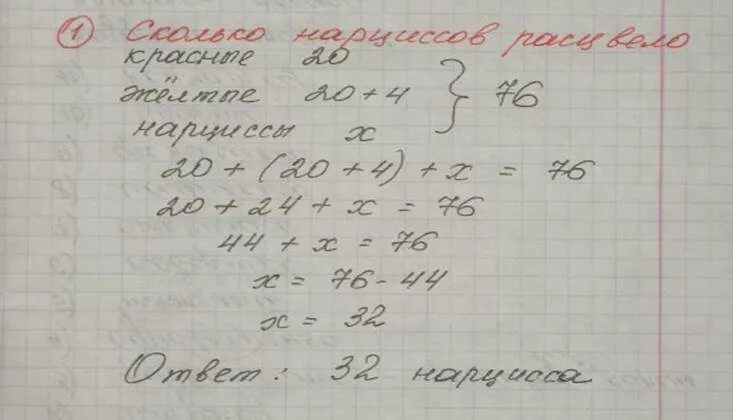 ① Сколько нарциссов расцвело
красные 20
жёлтые 20+4 } 76
нарциссы x
20 + (20 + 4) + x = 76
20 + 24 + x = 76
44 + x = 76
x = 76 - 44
x = 32
Ответ: 32 нарцисса